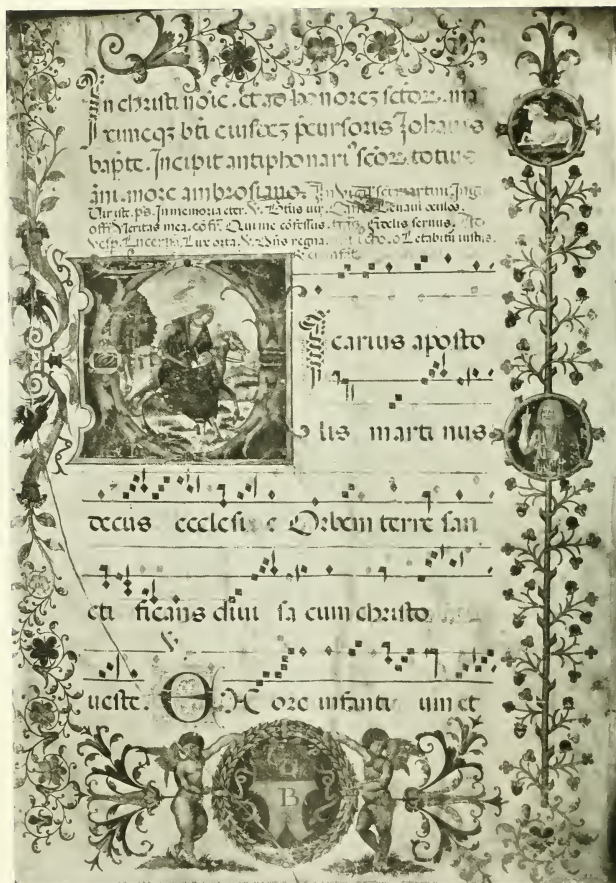 In christi noīe. et ad honorez sctoꝝ. ma
ximeqz bti eiusdez p̄cursoris Johanis
bapte. Incipit antiphonariꝰ scoꝝ totius
āni. more ambrosiano. In martini. Ing
Vir iste. ps. In memoria eter. V. Btus uir. Leuaui oculos.
off Veritas mea. cōfr. Qui me cōfessus. fidelis seruus.
vesp. Lucerna. Lux orta. V. Dns regna. Letabitur iustus.
icarius aposto
lis marti nus
decus ecclesi e Orbem terre san
cti ficans diui sa cum christo
ueste. Ex ore infanti um et
B